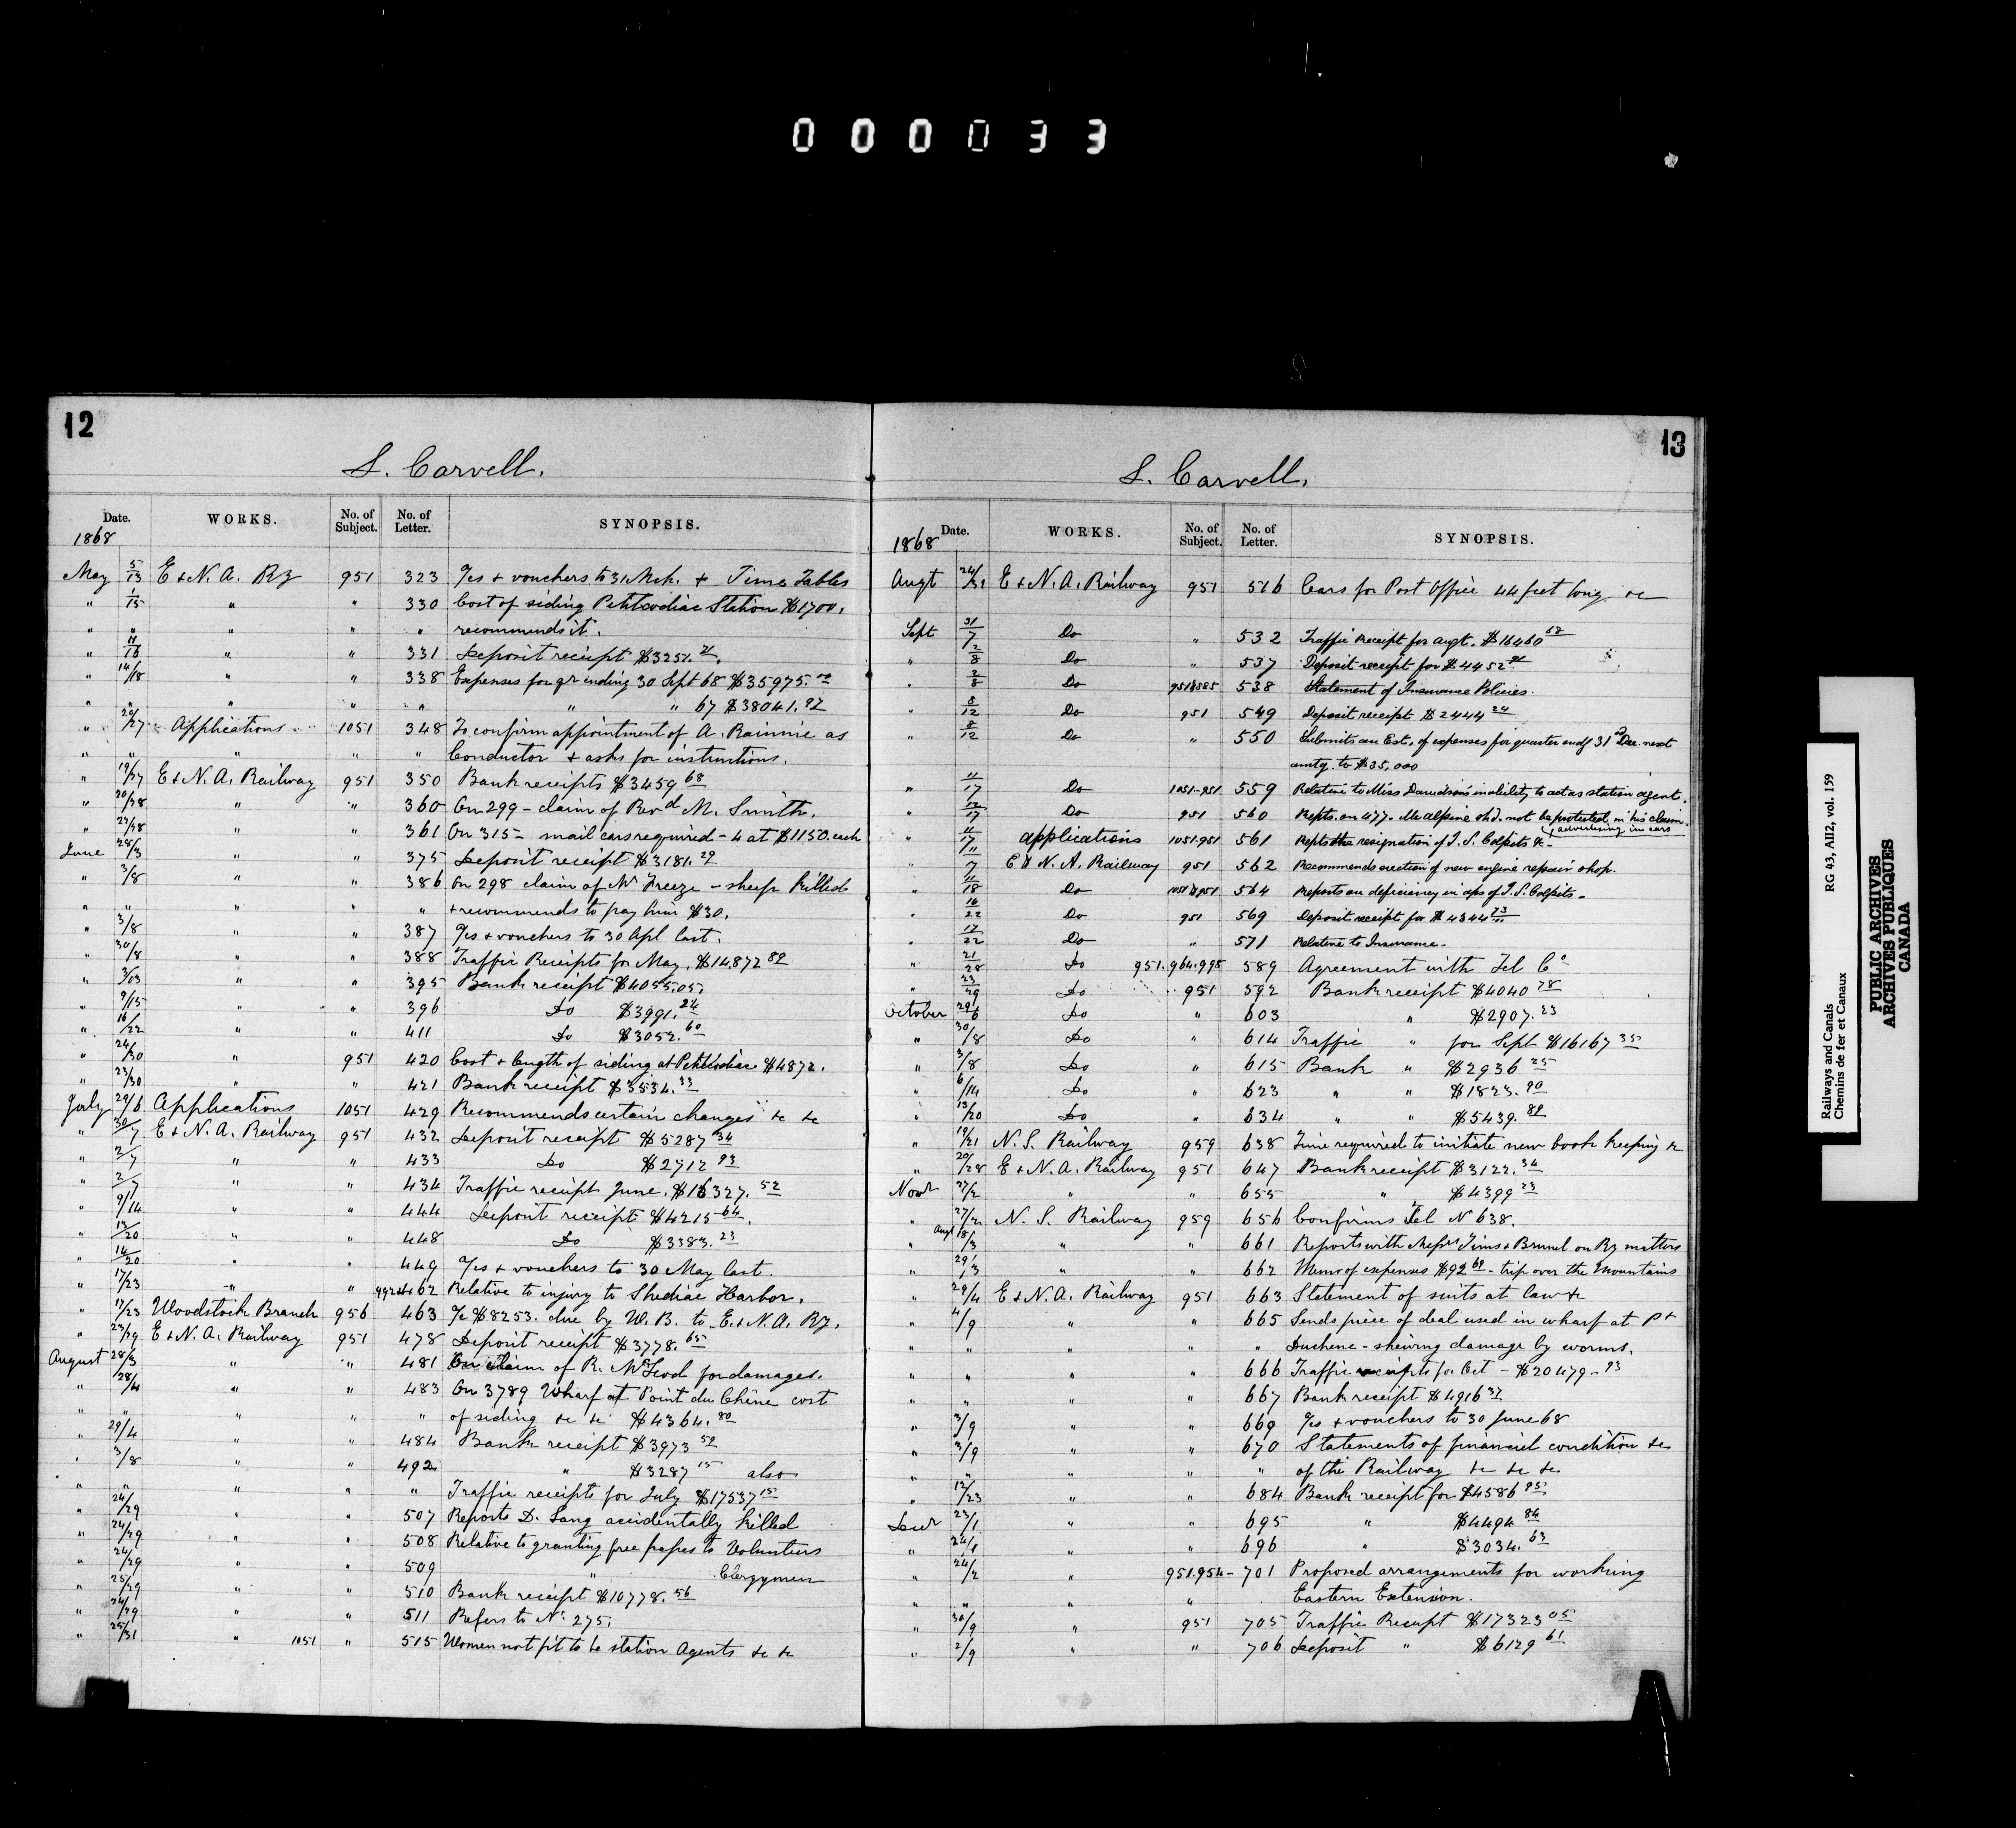 000033
12
S. Carvell.
Date. WORKS. No. of Subject. No. of Letter. SYNOPSIS.
1868
May 5/13 E & N. A. Ry 951 323 %s & vouchers to 31 Mch. & Time Tables
" 1/15 " " 330 Cost of siding Petitcodiac Station $1700.
" " " " " recommends it.
" 11/16 " " 331 Deposit receipt $3251.
" 14/18 " " 338 Expenses for qr ending 30 Sept 68 $35975.
" " " " " " " 67 $38041.92
" 20/27 Applications 1051 348 To confirm appointment of A. Rainnie as
" " " " Conductor & asks for instructions.
" 19/27 E & N. A. Railway 951 350 Bank receipts $3459 68
" 20/28 " " 360 On 299 - claim of Revd M. Smith.
" 22/28 " " 361 On 315 - mail cars required - 4 at $1150. each
June 28/3 " " 375 Deposit receipt $3181.29
" 3/8 " " 386 On 298 claim of Mr Freeze - sheep killed
" " " " " & recommends to pay him $30.
" 3/8 " " 387 %s & vouchers to 30 Apl last.
" 30/8 " " 388 Traffic Receipts for May. $14,872 82
" 3/13 " " 395 Bank receipt $4055.05.
" 9/15 " " 396 Do $3991.24
" 16/22 " " 411 Do $3052.60
" 24/30 " 951 420 Cost & length of siding at Petitcodiac $4872.
" 23/30 " " 421 Bank receipt $3534.33
July 29/6 Applications 1051 429 Recommends certain changes &c &c
" 30/7 E & N. A. Railway 951 432 Deposit receipt $5287 34
" 2/7 " " 433 Do $2712 93
" 2/7 " " 434 Traffic receipt June. $16327.52
" 9/14 " " 444 Deposit receipt $4215 64.
" 13/20 " " 448 Do $3383.23
" 14/20 " " 449 %s & vouchers to 30 May last.
" 17/23 " " 462 Relative to injury to Shediac Harbor.
" 17/23 Woodstock Branch 956 463 %c $8253. due by W. B. to E. & N. A. Ry.
" 23/29 E & N. A. Railway 951 478 Deposit receipt $3778.65
August 28/3 " " 481 On claim of R. McLeod for damages.
" 28/4 " " 483 On 3789 Wharf at Point du Chêne cost
" " " " " of siding &c &c $4364.80
" 29/4 " " 484 Bank receipt $3973 52
" 3/8 " " 492 " $3287 15 also
" " " " " Traffic receipts for July $17537 15
" 24/29 " " 507 Reports D. Lang accidentally killed
" 24/29 " " 508 Relative to granting free passes to Volunteers
" 24/29 " " 509 " Clergymen
" 25/29 " " 510 Bank receipt $10778.56
" 24/29 " " 511 Refers to No. 275.
" 25/31 " 1051 " 515 Women not fit to be station Agents &c &c
13
S. Carvell.
Date. WORKS. No. of Subject. No. of Letter. SYNOPSIS.
1868
Augt 24/31 E & N. A. Railway 951 516 Cars for Post Office 44 feet long &c
Sept 31/7 Do " 532 Traffic Receipt for augt. $16460 68
" 2/8 Do " 537 Deposit receipt for $4452
" 2/8 Do 538 Statement of Insurance Policies.
" 8/12 Do 951 549 Deposit receipt $2444 24
" 8/12 Do " 550 Submits an Est. of expenses for quarter endg 31st Dec. next
amtg. to $35,000
" 11/17 Do 1051-951 559 Relative to Miss Davidson's inability to act as station agent.
" 12/17 Do 951 560 Repts. on 477. McAlpine shd. not be protected in his claim.
(advertising in cars
" 11/17 applications 1051.951 561 Repts the resignation of J. S. Colpits &c -
" 11/7 E & N. A. Railway 951 562 Recommends erection of new engine repair shop.
" 11/18 Do 1051 & 951 564 Reports on deficiency in a/cs of J. S. Colpits -
" 16/22 Do 951 569 Deposit receipt for $4344 73
" 17/22 Do " 571 Relative to Insurance -
" 21/28 Do 951.964.998 589 Agreement with Tel Co
" 23/29 Do 951 592 Bank receipt $4040 78
October 29/6 Do " 603 " $2907.23
" 30/8 Do " 614 Traffic " for Sept $16167 35
" 3/8 Do " 615 Bank " $2936 25
" 6/14 Do " 623 " " $1823.90
" 13/20 Do " 634 " " $5439.82
" 19/21 N. S. Railway 959 638 Time required to initiate new book keeping &c
" 20/28 E & N. A. Railway 951 647 Bank receipt $3122.34
Novr 27/2 " " 655 " $4399 23
" 27/2 N. S. Railway 959 656 Confirms Tel No 638.
" Augt 18/3 " " 661 Reports with Messrs Tims & Brunel on Ry matters
" 29/3 " " 662 Memo of expenses $92 69 - trip over the Mountains
" 29/4 E & N. A. Railway 951 663 Statement of suits at law &c
" 4/9 " " 665 Sends piece of deal used in wharf at Pt
" " " " " Duchene - shewing damage by worms.
" " " " 666 Traffic receipts for Oct - $20479 - 93
" " " " 667 Bank receipt $4916 37
" 3/9 " " 669 %s & vouchers to 30 June 68
" 3/9 " " 670 Statements of financial condition &c
" " " " " of the Railway &c &c &c
" 12/23 " " 684 Bank receipt for $4586 95
Decr 23/1 " " 695 " $4494 84
" 24/1 " " 696 " $3034.63
" 24/2 " 951.954 - 701 Proposed arrangements for working
" " " " Eastern Extension.
" 30/9 " 951 705 Traffic Receipt $17323 05
" 2/9 " " 706 Deposit " $6129 61
Railways and Canals
Chemins de fer et Canaux
RG 43, AII2, vol. 159
PUBLIC ARCHIVES
ARCHIVES PUBLIQUES
CANADA